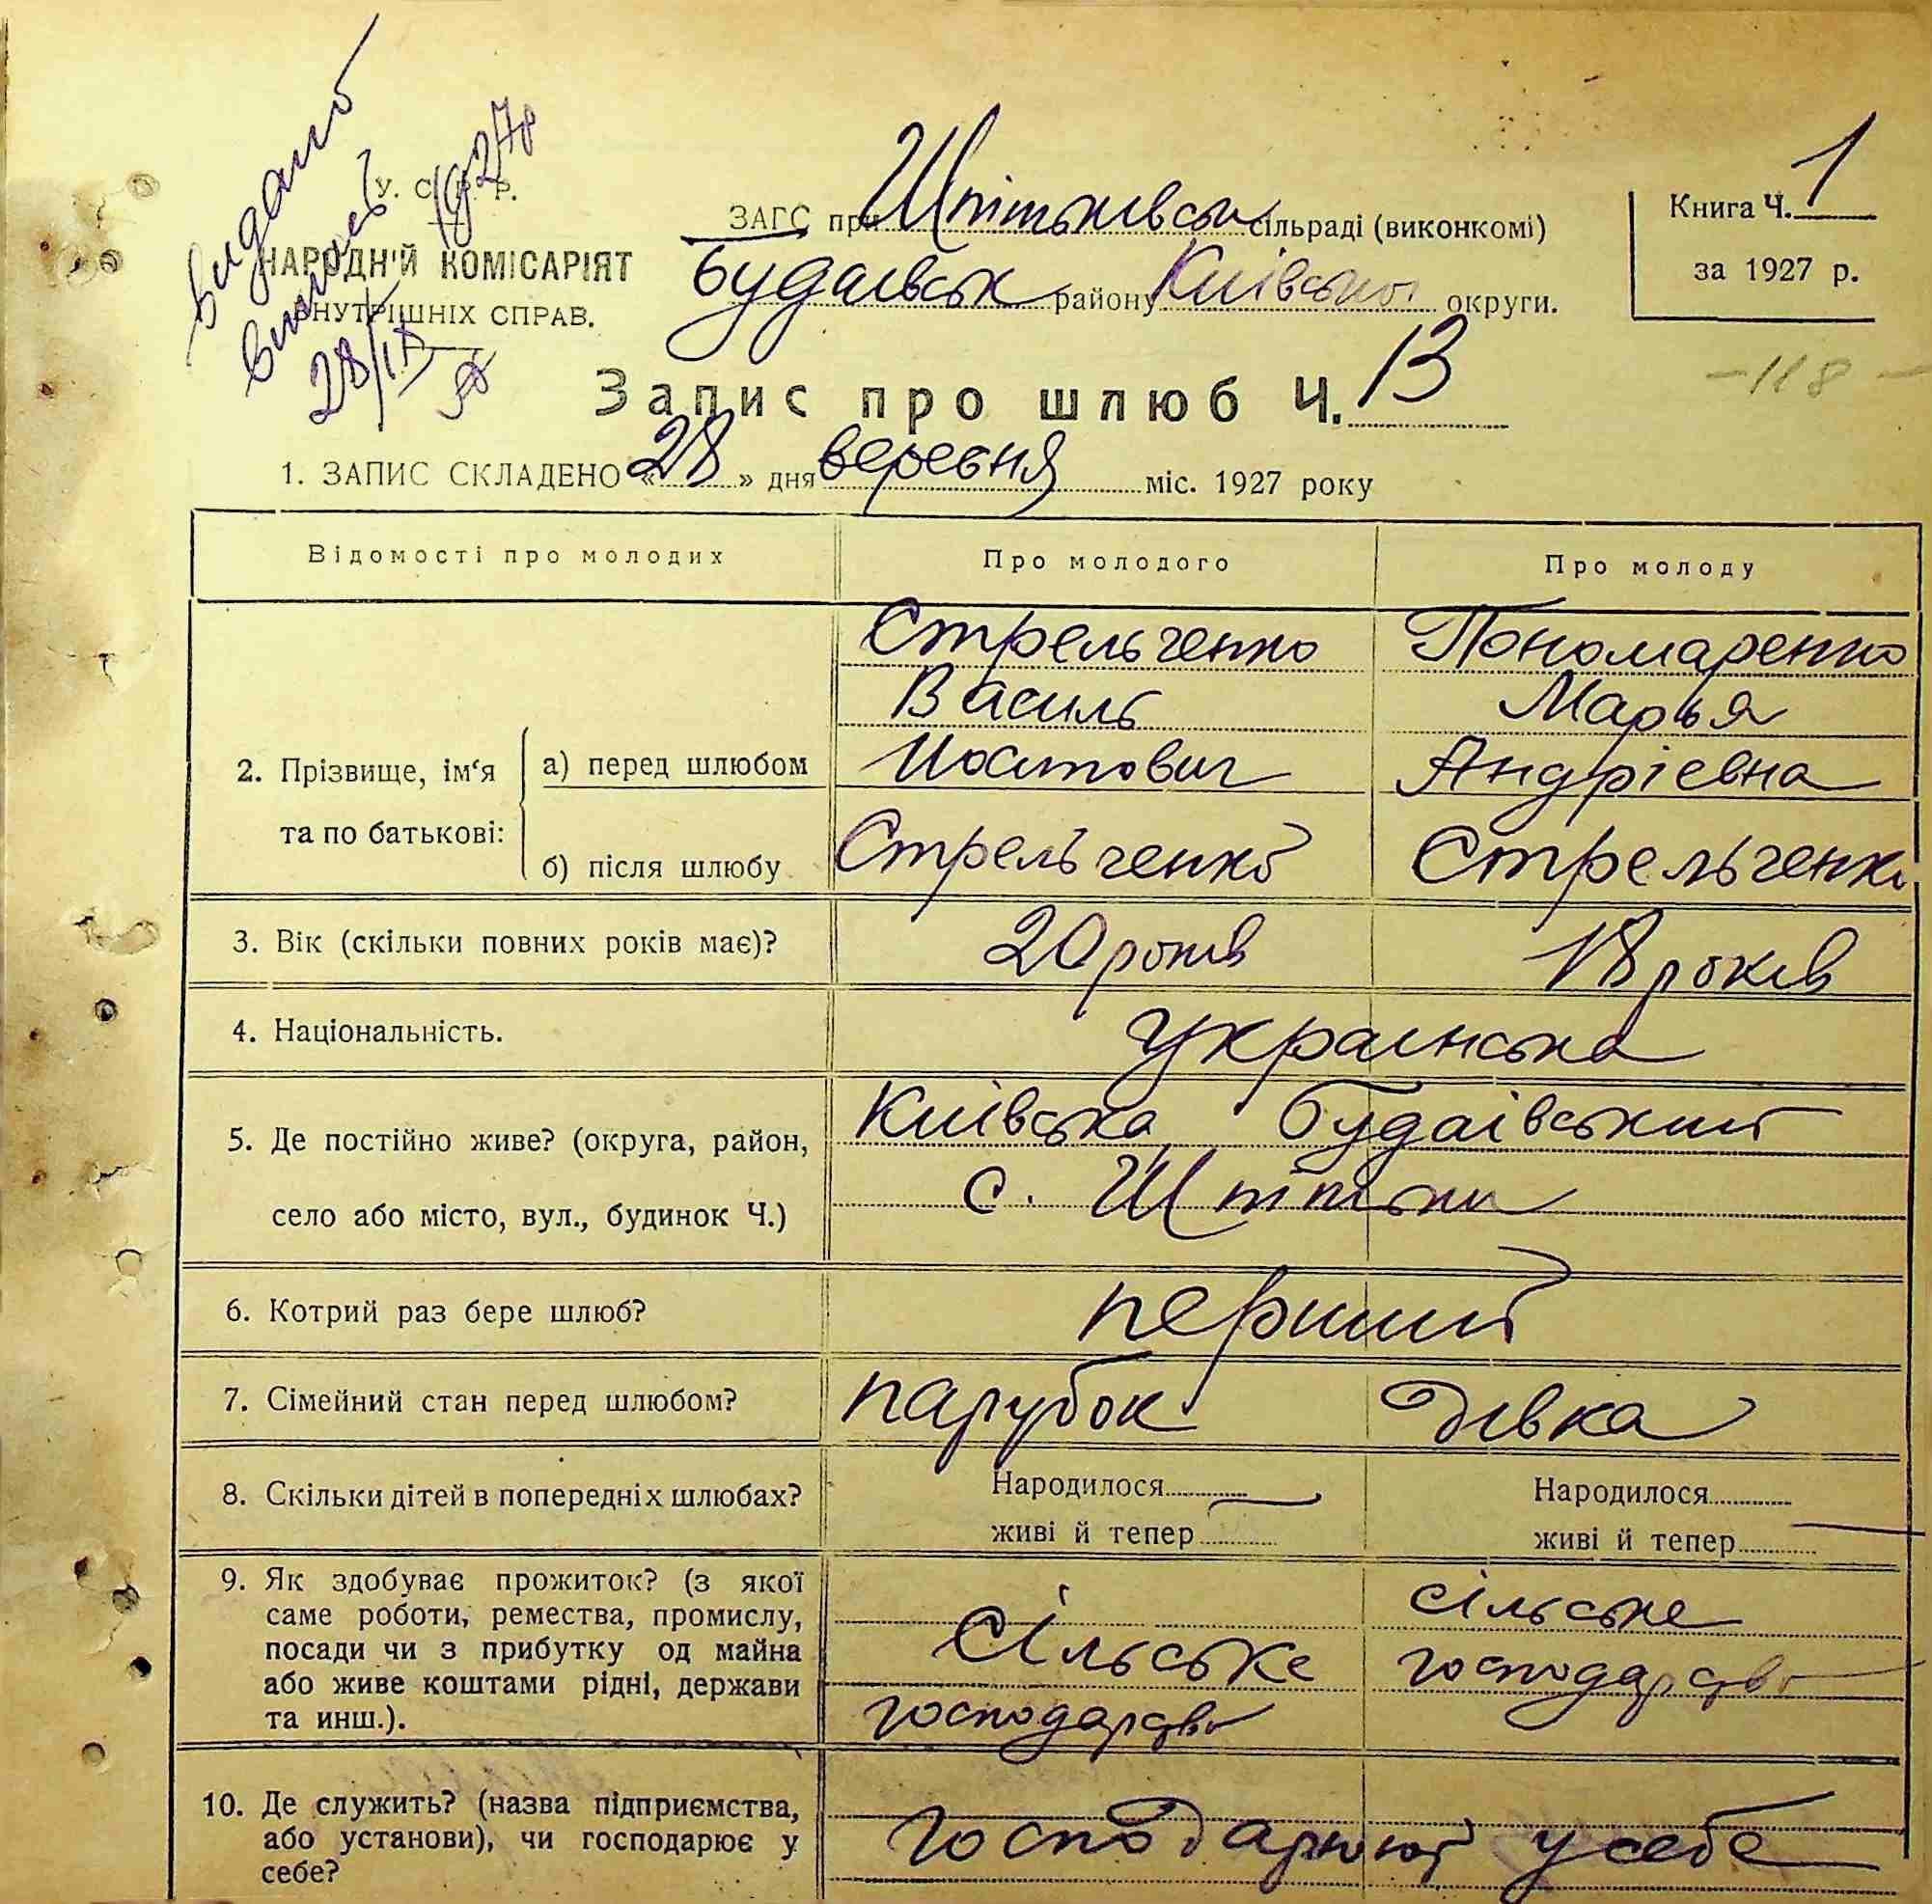 видано
виписъ
28/IX 1927р
У. С. Р. Р.
НАРОДНІЙ КОМІСАРІЯТ
ВНУТРІШНІХ СПРАВ.
ЗАГС при Шпітьківськ сільраді (виконкомі)
Будаєвськ району Київської округи.
Книга Ч. 1
за 1927 р.
-118-
Запис про шлюб Ч. 13
1. ЗАПИС СКЛАДЕНО «28» дня вересня міс. 1927 року
Відомості про молодих
Про молодого
Про молоду
2. Прізвище, ім‘я
та по батькові:
а) перед шлюбом
Стрельченко
Василь
Пономаренко
Марья
Андрієвна
б) після шлюбу
Стрельченко
Стрельченко
3. Вік (скільки повних років має)?
20 років
18 років
4. Національність.
украінська
5. Де постійно живе? (округа, район,
село або місто, вул., будинок Ч.)
Київська Будаівський
с. Шпітьки
6. Котрий раз бере шлюб?
перший
7. Сімейний стан перед шлюбом?
парубок
дівка
8. Скільки дітей в попередніх шлюбах?
Народилося
живі й тепер
Народилося
живі й тепер
9. Як здобуває прожиток? (з якої
саме роботи, ремества, промислу,
посади чи з прибутку од майна
або живе коштами рідні, держави
та инш.).
Сільське
господарство
сільське
господарство
10. Де служить? (назва підприємства,
або установи), чи господарює у
себе?
господарюют у себе